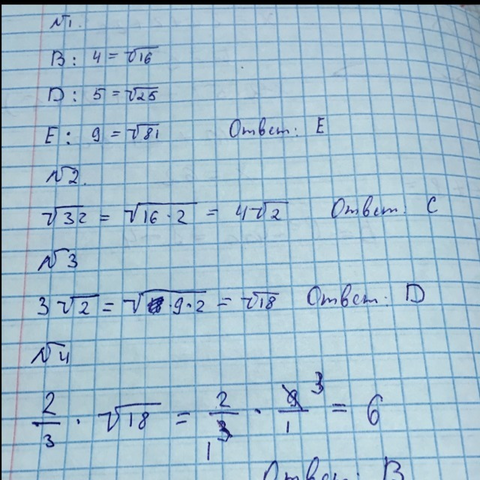 №1.
B: 4 = √16
D: 5 = √25
E: 9 = √81 Ответ: E
№2.
√32 = √16·2 = 4√2 Ответ: C
№3
3√2 = √9·2 = √18 Ответ: D
№4
2/3 · √18 = 2/3 · 9/1 = 6
1 3
Ответ: B